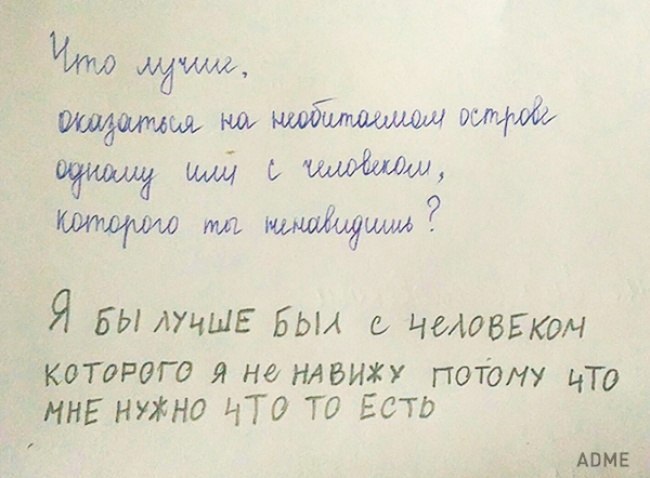 Что лучше,
оказаться на необитаемом острове
одному или с человеком,
которого ты ненавидишь?
Я БЫ ЛУЧШЕ БЫЛ С ЧЕЛОВЕКОМ
КОТОРОГО Я НЕ НАВИЖУ ПОТОМУ ЧТО
МНЕ НУЖНО ЧТО ТО ЕСТЬ
ADME